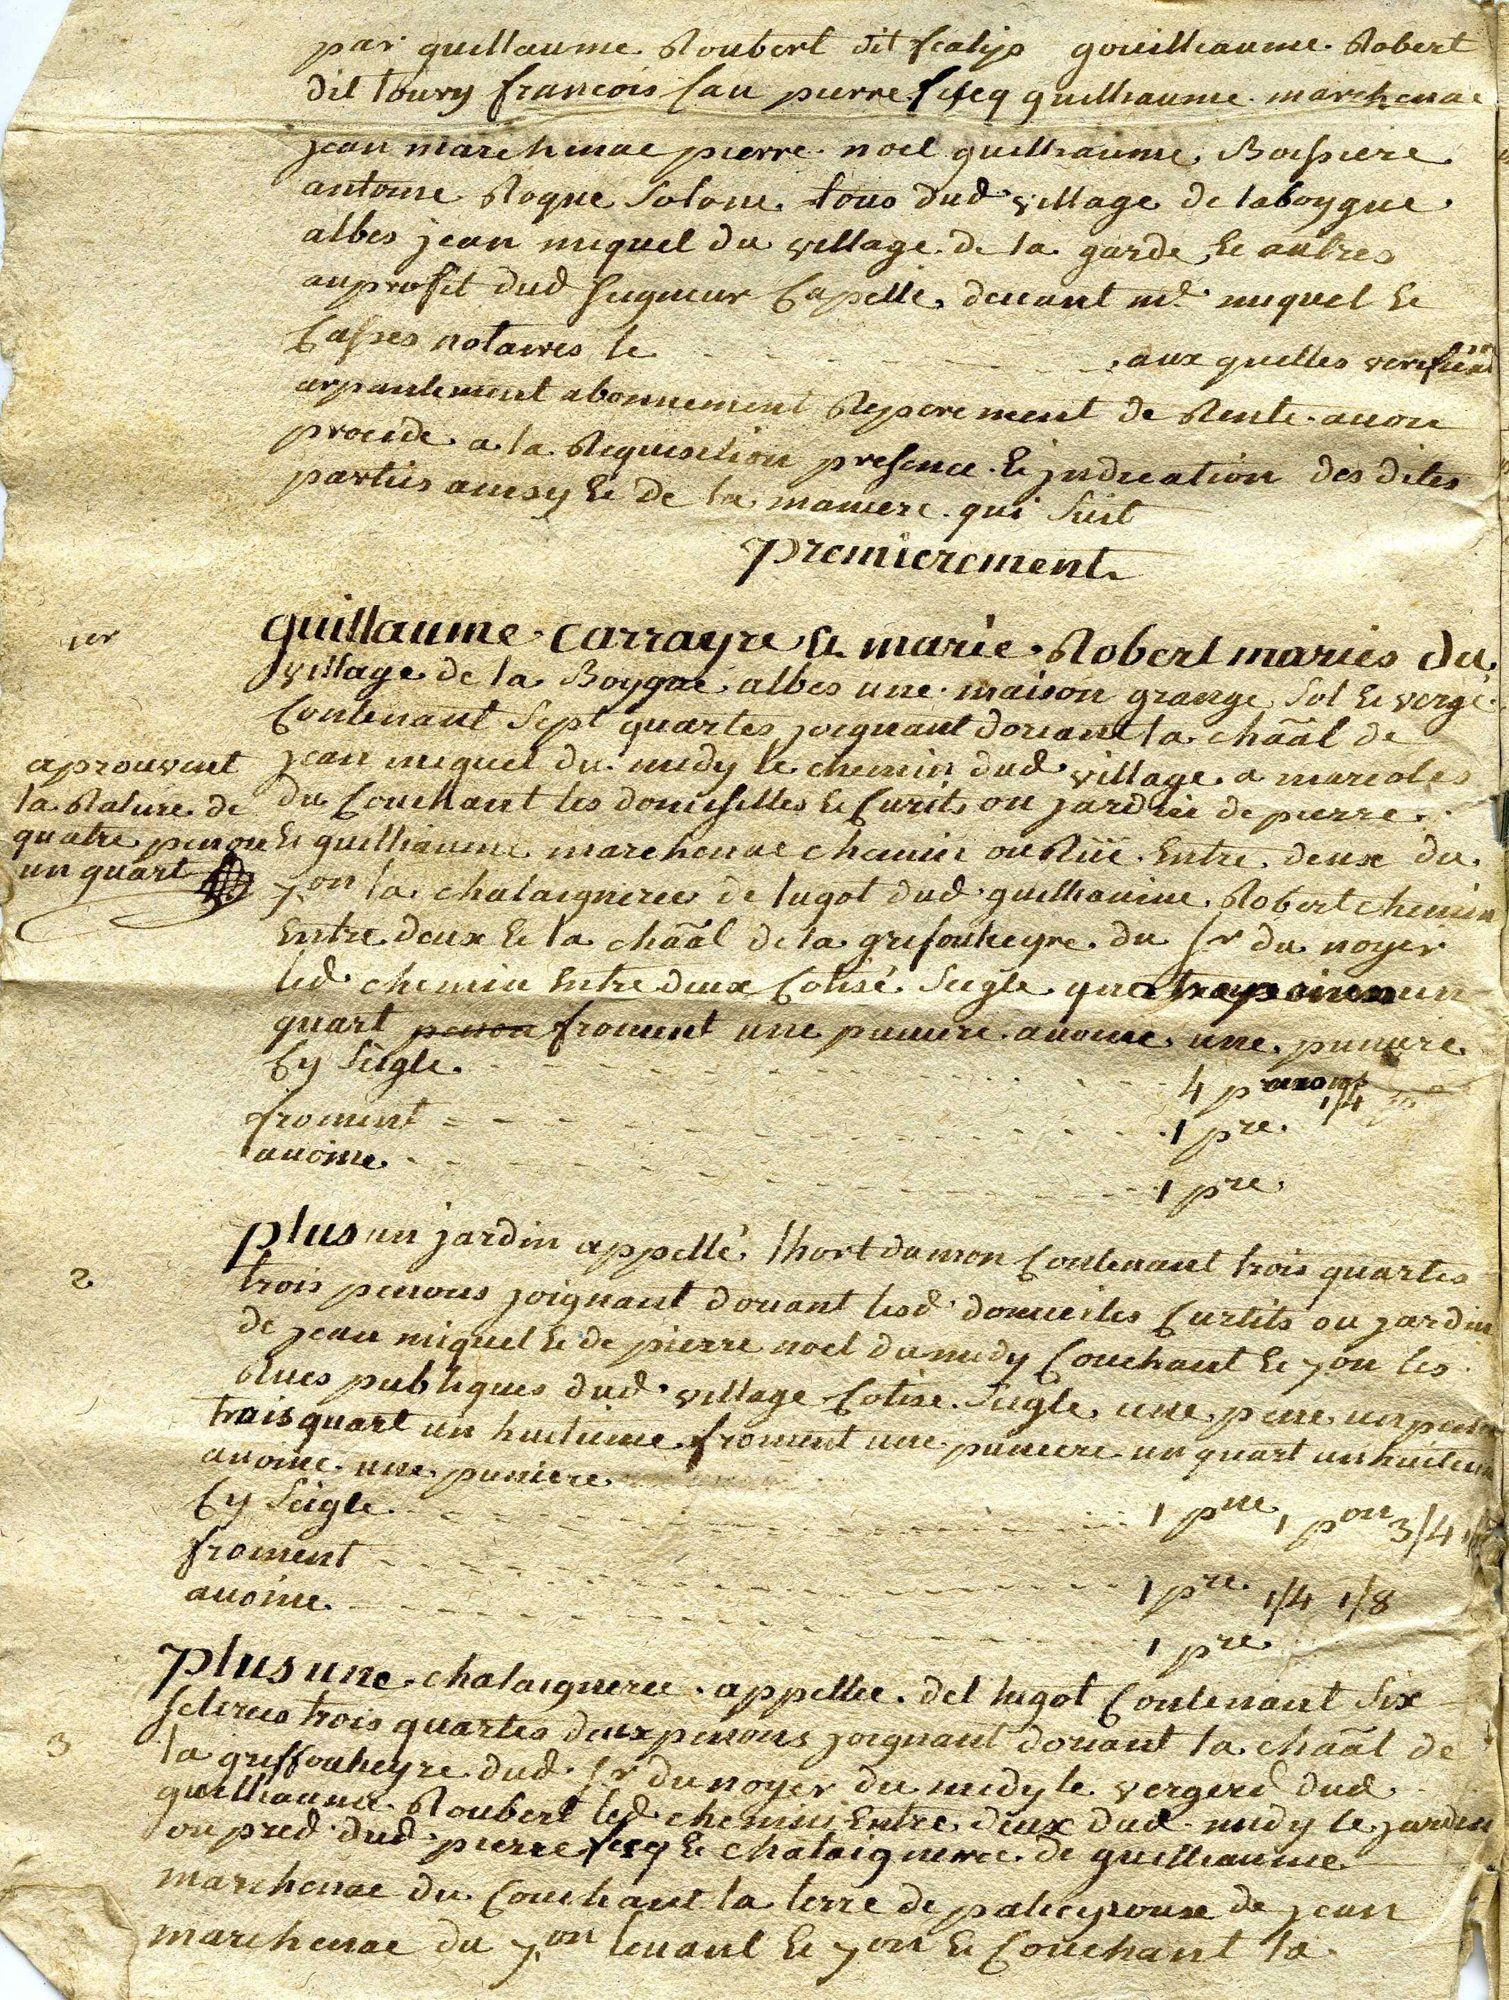 par guillaume Roubert dit scalip gouilleaume Robert
dit toury francois sau pierre guilhaume marchenac
jean marchenac pierre noel guilhaume Boissiere
antoine Roque Solom tous dud village de laboygue
albes jean miquel du village de la garde & autres
auprofit dud seigneur Capelle devant me miquel &
Casses notaires le - - - - - aux quelles veriffica
arpantement abonnement Reperement de Rente avon
procede a la Requisition presence & jndication des dites
partiis ainsy & de la maniere qui suit
premierement
1er
guillaume Carrayre & marie Robert mariés du
village de la Boygue albes une maison grange sol & verge
Contenant sept quartes joignant dorant la chaãl de
jean miquel du midy le chemin dud village a marcoles
du Couchant les domeselles & Curits ou jardin de pierre
& guilhaume marchenac chemin ou Rüe Entre deux du
7on la chataigneree de lugot dud guilhaume Robert chemin
Entre deux & la chaãl de la grifoulheyre du sr du noyer
led chemin Entre deux Cotisé Seigle quatre penon un
quart penon froment une puniere avoine une puniere
aprouvent
la Rature de
quatre penon
un quart
Cy Seigle - - - - 4 penons 1/4
froment - - - - 1 pre
avoine - - - - 1 pre
2
plus un jardin appellé lhort damon Contenant trois quartes
trois penons joignant dorant lesd domeiles Curtits ou jardin
de jean miquel & de pierre noel du midy Couchant & 7on les
Rues publiques dud village Cotise Seigle une pere un penon
trois quart un huitieme froment une puniere un quart un huitieme
avoine une puniere
Cy Seigle - - - - 1 pre 1 pon 3/4 1/8
froment - - - - 1 pre 1/4 1/8
avoine - - - - 1 pre
3
plus une chataigneree appellée del lugot Contenant six
seterees trois quartes deux penons joignant dorant la chaãl de
la griffoulheyre dud sr du noyer du midy le vergerd dud
guilhaume Roubert led chemin Entre deux dud midy le jardin
ou pred dud pierre & chataigneree de guilheaume
marchenac du Couchant la terre de paleyrouse de jean
marchenac du 7on levant & 7on & Couchant la